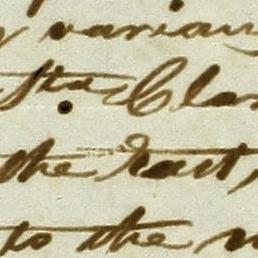 variou
Sta Cla
the East,
to the